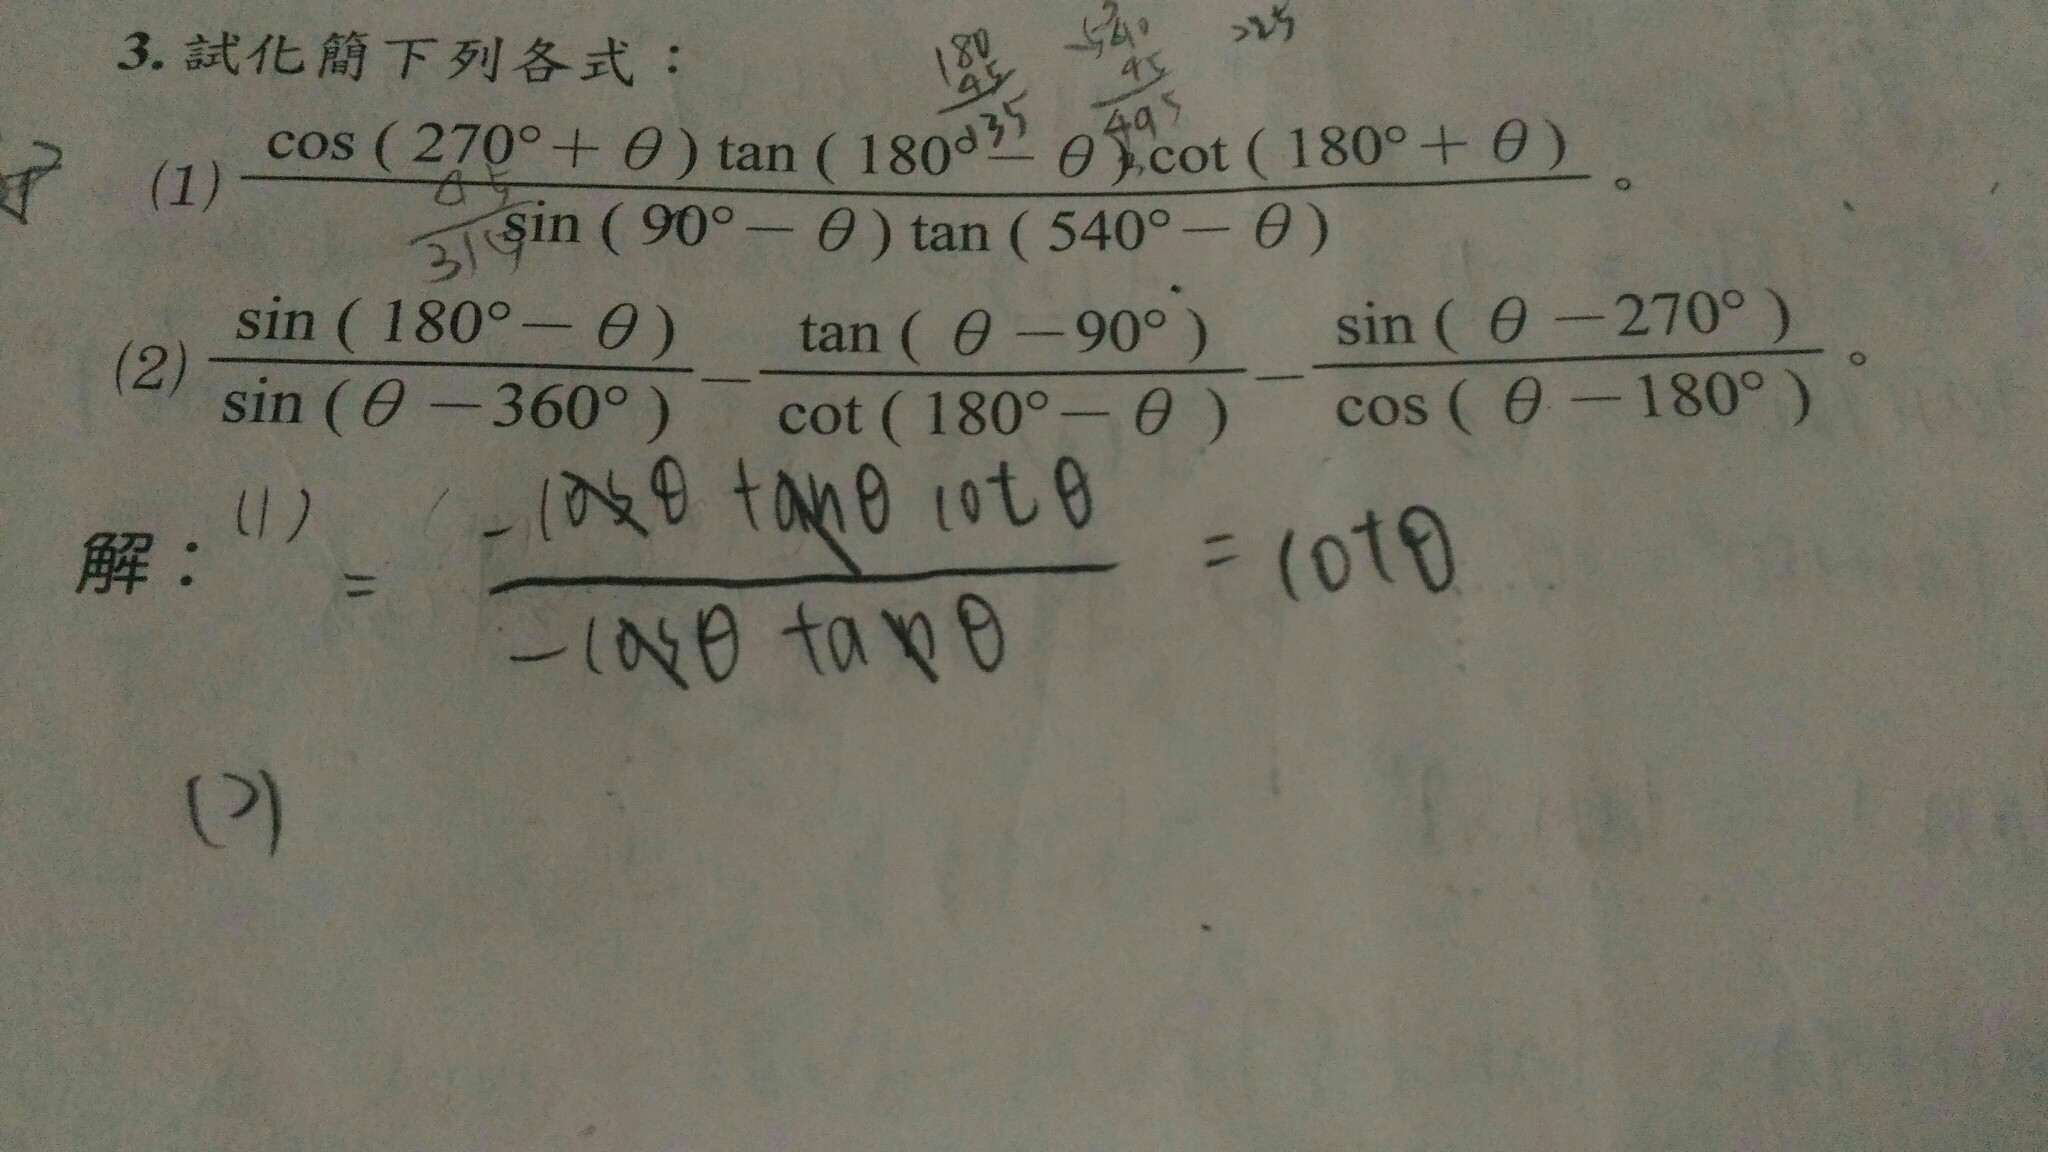 3. 試化簡下列各式：
180 540 225
45 45
135 495
(1) cos ( 270° + θ ) tan ( 180° − θ ) cot ( 180° + θ )
45
315
sin ( 90° − θ ) tan ( 540° − θ ) 。
(2) sin ( 180° − θ ) / sin ( θ − 360° ) − tan ( θ − 90° ) / cot ( 180° − θ ) − sin ( θ − 270° ) / cos ( θ − 180° ) 。
解： (1) = -cosθ tanθ cotθ / -cosθ tanθ = cotθ
(2)